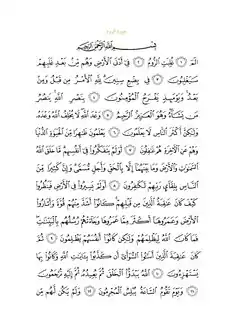 بِسْمِ ٱللَّهِ ٱلرَّحْمَٰنِ ٱلرَّحِيمِ
الٓمٓ ١ غُلِبَتِ ٱلرُّومُ ٢ فِىٓ أَدْنَى ٱلْأَرْضِ وَهُم مِّنۢ بَعْدِ غَلَبِهِمْ
سَيَغْلِبُونَ ٣ فِى بِضْعِ سِنِينَ ۗ لِلَّهِ ٱلْأَمْرُ مِن قَبْلُ وَمِنۢ
بَعْدُ ۚ وَيَوْمَئِذٍ يَفْرَحُ ٱلْمُؤْمِنُونَ ٤ بِنَصْرِ ٱللَّهِ ۚ يَنصُرُ
مَن يَشَآءُ ۖ وَهُوَ ٱلْعَزِيزُ ٱلرَّحِيمُ ٥ وَعْدَ ٱللَّهِ ۖ لَا يُخْلِفُ ٱللَّهُ وَعْدَهُۥ
وَلَٰكِنَّ أَكْثَرَ ٱلنَّاسِ لَا يَعْلَمُونَ ٦ يَعْلَمُونَ ظَٰهِرًا مِّنَ ٱلْحَيَوٰةِ ٱلدُّنْيَا
وَهُمْ عَنِ ٱلْءَاخِرَةِ هُمْ غَٰفِلُونَ ٧ أَوَلَمْ يَتَفَكَّرُوا۟ فِىٓ أَنفُسِهِم ۗ مَّا خَلَقَ ٱللَّهُ
ٱلسَّمَٰوَٰتِ وَٱلْأَرْضَ وَمَا بَيْنَهُمَآ إِلَّا بِٱلْحَقِّ وَأَجَلٍ مُّسَمًّى ۗ وَإِنَّ كَثِيرًا مِّنَ
ٱلنَّاسِ بِلِقَآئِ رَبِّهِمْ لَكَٰفِرُونَ ٨ أَوَلَمْ يَسِيرُوا۟ فِى ٱلْأَرْضِ فَيَنظُرُوا۟
كَيْفَ كَانَ عَٰقِبَةُ ٱلَّذِينَ مِن قَبْلِهِمْ ۚ كَانُوٓا۟ أَشَدَّ مِنْهُمْ قُوَّةً وَأَثَارُوا۟
ٱلْأَرْضَ وَعَمَرُوهَآ أَكْثَرَ مِمَّا عَمَرُوهَا وَجَآءَتْهُمْ رُسُلُهُم بِٱلْبَيِّنَٰتِ ۖ
فَمَا كَانَ ٱللَّهُ لِيَظْلِمَهُمْ وَلَٰكِن كَانُوٓا۟ أَنفُسَهُمْ يَظْلِمُونَ ٩ ثُمَّ
كَانَ عَٰقِبَةَ ٱلَّذِينَ أَسَٰٓـُٔوا۟ ٱلسُّوٓأَىٰٓ أَن كَذَّبُوا۟ بِـَٔايَٰتِ ٱللَّهِ وَكَانُوا۟ بِهَا
يَسْتَهْزِءُونَ ١٠ ٱللَّهُ يَبْدَؤُا۟ ٱلْخَلْقَ ثُمَّ يُعِيدُهُۥ ثُمَّ إِلَيْهِ تُرْجَعُونَ
١١ وَيَوْمَ تَقُومُ ٱلسَّاعَةُ يُبْلِسُ ٱلْمُجْرِمُونَ ١٢ وَلَمْ يَكُن لَّهُم مِّن